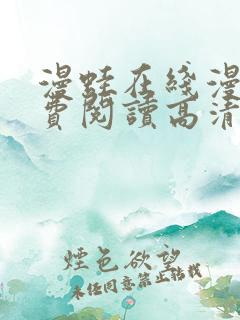 漫蛙在线漫
费阅读高清
煙色欲望
未经同意禁止转载